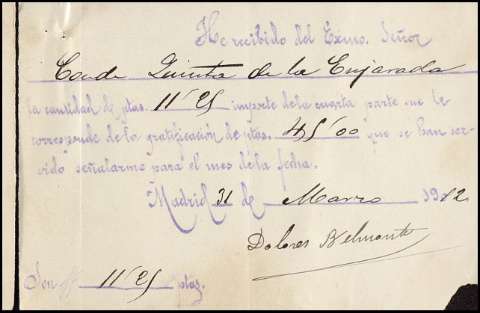 He recibido del Excmo. Señor
Conde Quinta de la Enjarada
la cantidad de ptas. 11'25 importe de la cuarta parte que le
corresponde de la gratificación de ptas. 45'00 que se han ser-
vido señalarme para el mes de la fecha.
Madrid 31 de Marzo 1912.
Dolores Belmonte
Son 11'25 ptas.